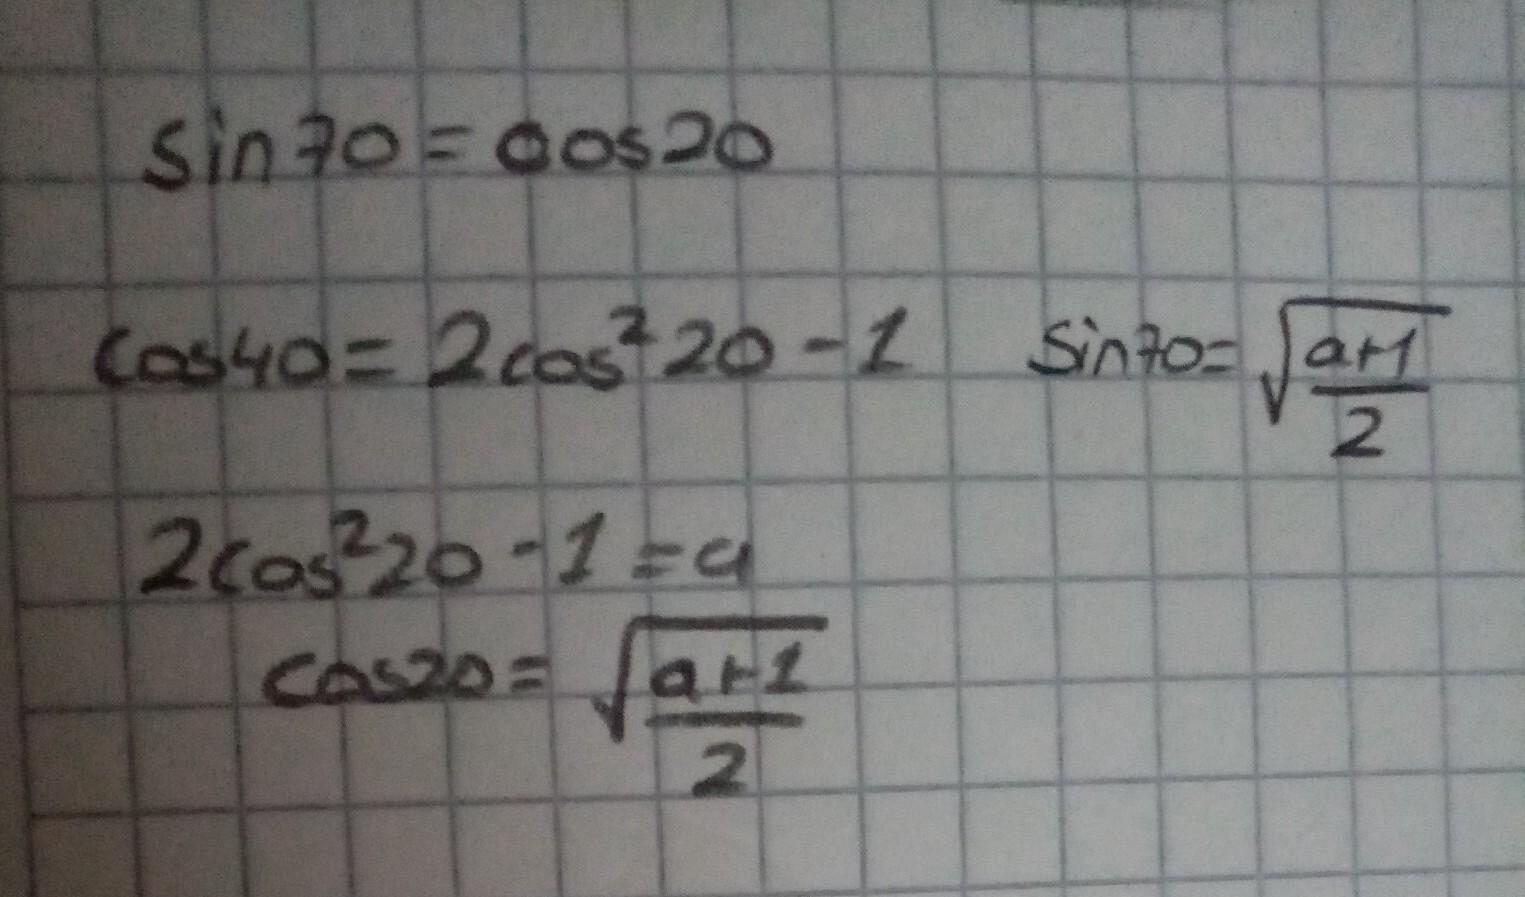 sin70 = cos20
cos40 = 2cos²20 - 1
sin70 = √((a+1)/2)
2cos²20 - 1 = a
cos20 = √((a+1)/2)